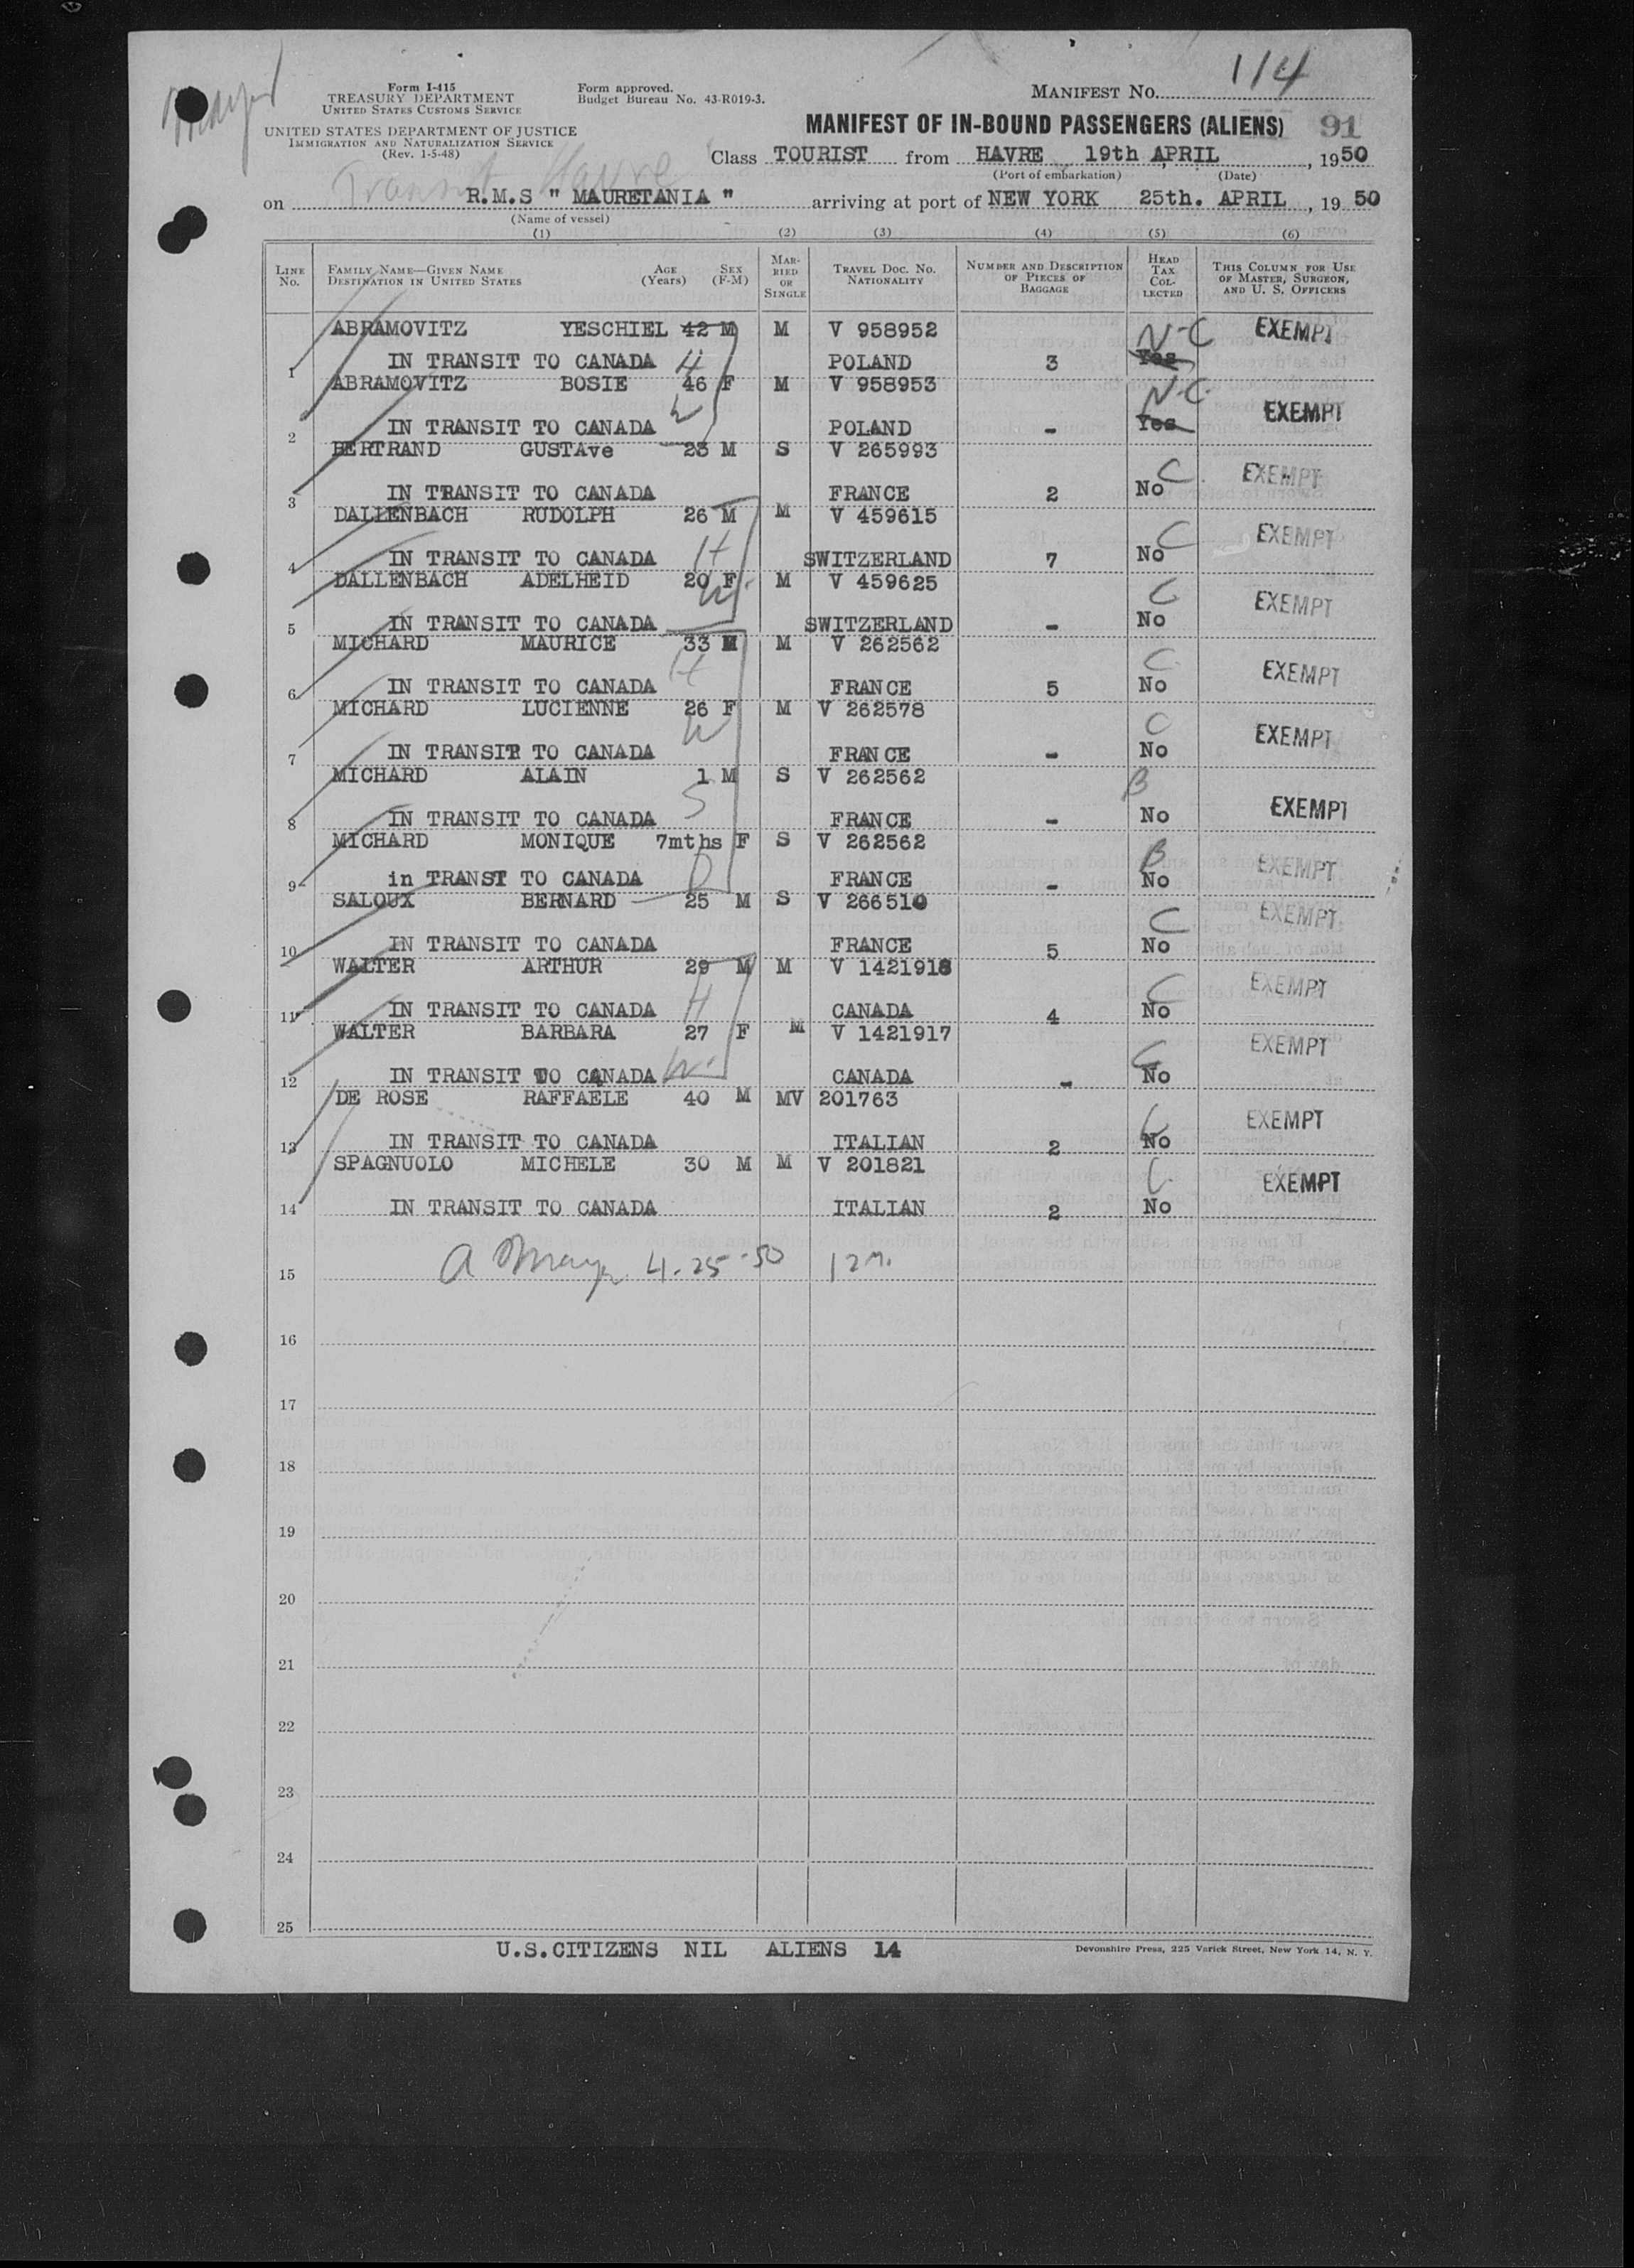 114
Form I-415
TREASURY DEPARTMENT
UNITED STATES CUSTOMS SERVICE
Form approved.
Budget Bureau No. 43-R019-3.
MANIFEST NO.
UNITED STATES DEPARTMENT OF JUSTICE
IMMIGRATION AND NATURALIZATION SERVICE
(Rev. 1-5-48)
MANIFEST OF IN-BOUND PASSENGERS (ALIENS) 91
Class TOURIST from HAVRE 19th APRIL, 1950
(Port of embarkation) (Date)
Transit Havre
on R.M.S " MAURETANIA " arriving at port of NEW YORK 25th. APRIL, 19 50
(Name of vessel)
(1) (2) (3) (4) (5) (6)
LINE NO. FAMILY NAME—GIVEN NAME DESTINATION IN UNITED STATES AGE (Years) SEX (F-M) MARRIED OR SINGLE TRAVEL DOC. NO. NATIONALITY NUMBER AND DESCRIPTION OF PIECES OF BAGGAGE HEAD TAX COLLECTED THIS COLUMN FOR USE OF MASTER, SURGEON, AND U. S. OFFICERS
ABRAMOVITZ YESCHIEL 42 M M V 958952 N-C EXEMPT
1 IN TRANSIT TO CANADA H POLAND 3 Yes
ABRAMOVITZ BOSIE 46 F M V 958953 N.C. EXEMPT
2 IN TRANSIT TO CANADA W POLAND - Yes
BERTRAND GUSTAve 23 M S V 265993 C EXEMPT
3 IN TRANSIT TO CANADA FRANCE 2 No
DALLENBACH RUDOLPH 26 M M V 459615 C EXEMPT
4 IN TRANSIT TO CANADA H SWITZERLAND 7 No
DALLENBACH ADELHEID 20 F M V 459625 C EXEMPT
5 IN TRANSIT TO CANADA W SWITZERLAND - No
MICHARD MAURICE 33 M M V 262562 C EXEMPT
6 IN TRANSIT TO CANADA H FRANCE 5 No
MICHARD LUCIENNE 26 F M V 262578 C EXEMPT
7 IN TRANSIT TO CANADA W FRANCE - No
MICHARD ALAIN 1 M S V 262562 B EXEMPT
8 IN TRANSIT TO CANADA S FRANCE - No
MICHARD MONIQUE 7mths F S V 262562 B EXEMPT
9 in TRANST TO CANADA D FRANCE - No
SALOUX BERNARD 25 M S V 266510 C EXEMPT
10 IN TRANSIT TO CANADA FRANCE 5 No
WALTER ARTHUR 29 M M V 1421918 C EXEMPT
11 IN TRANSIT TO CANADA H CANADA 4 No
WALTER BARBARA 27 F M V 1421917 C EXEMPT
12 IN TRANSIT TO CANADA W. CANADA - No
DE ROSE RAFFAELE 40 M MV 201763 C EXEMPT
13 IN TRANSIT TO CANADA ITALIAN 2 No
SPAGNUOLO MICHELE 30 M M V 201821 C. EXEMPT
14 IN TRANSIT TO CANADA ITALIAN 2 No
15 4-25-50
16
17
18
19
20
21
22
23
24
25
U.S.CITIZENS NIL ALIENS 14
Devonshire Press, 225 Varick Street, New York 14, N. Y.